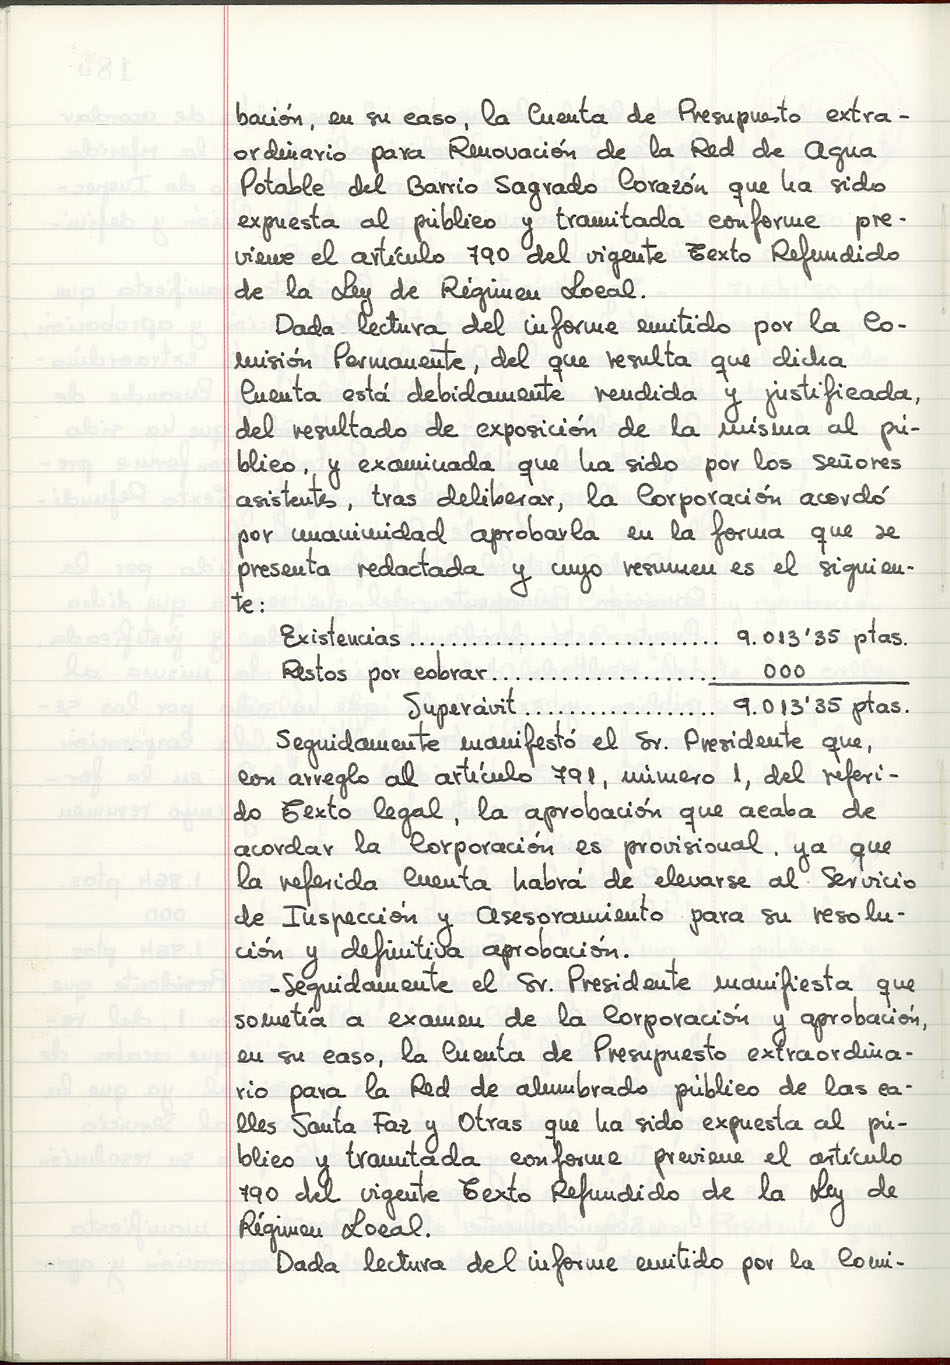 bación, en su caso, la Cuenta de Presupuesto extra-
ordinario para Renovación de la Red de Agua
Potable del Barrio Sagrado Corazón que ha sido
expuesta al público y tramitada conforme pre-
viene el artículo 790 del vigente Texto Refundido
de la Ley de Régimen Local.
Dada lectura del informe emitido por la Co-
misión Permanente, del que resulta que dicha
Cuenta está debidamente rendida y justificada,
del resultado de exposición de la misma al pú-
blico, y examinada que ha sido por los señores
asistentes, tras deliberar, la Corporación acordó
por unanimidad aprobarla en la forma que se
presenta redactada y cuyo resumen es el siguien-
te:
Existencias .............................. 9.013'35 ptas.
Restos por cobrar...................... 000
Superávit.................... 9.013'35 ptas.
Seguidamente manifestó el Sr. Presidente que,
con arreglo al artículo 791, número 1, del referi-
do Texto legal, la aprobación que acaba de
acordar la Corporación es provisional, ya que
la referida Cuenta habrá de elevarse al Servicio
de Inspección y Asesoramiento para su resolu-
ción y definitiva aprobación.
-Seguidamente el Sr. Presidente manifiesta que
sometía a examen de la Corporación y aprobación,
en su caso, la Cuenta de Presupuesto extraordina-
rio para la Red de alumbrado público de las ca-
lles Santa Faz y Otras que ha sido expuesta al pú-
blico y tramitada conforme previene el artículo
790 del vigente Texto Refundido de la Ley de
Régimen Local.
Dada lectura del informe emitido por la Comi-